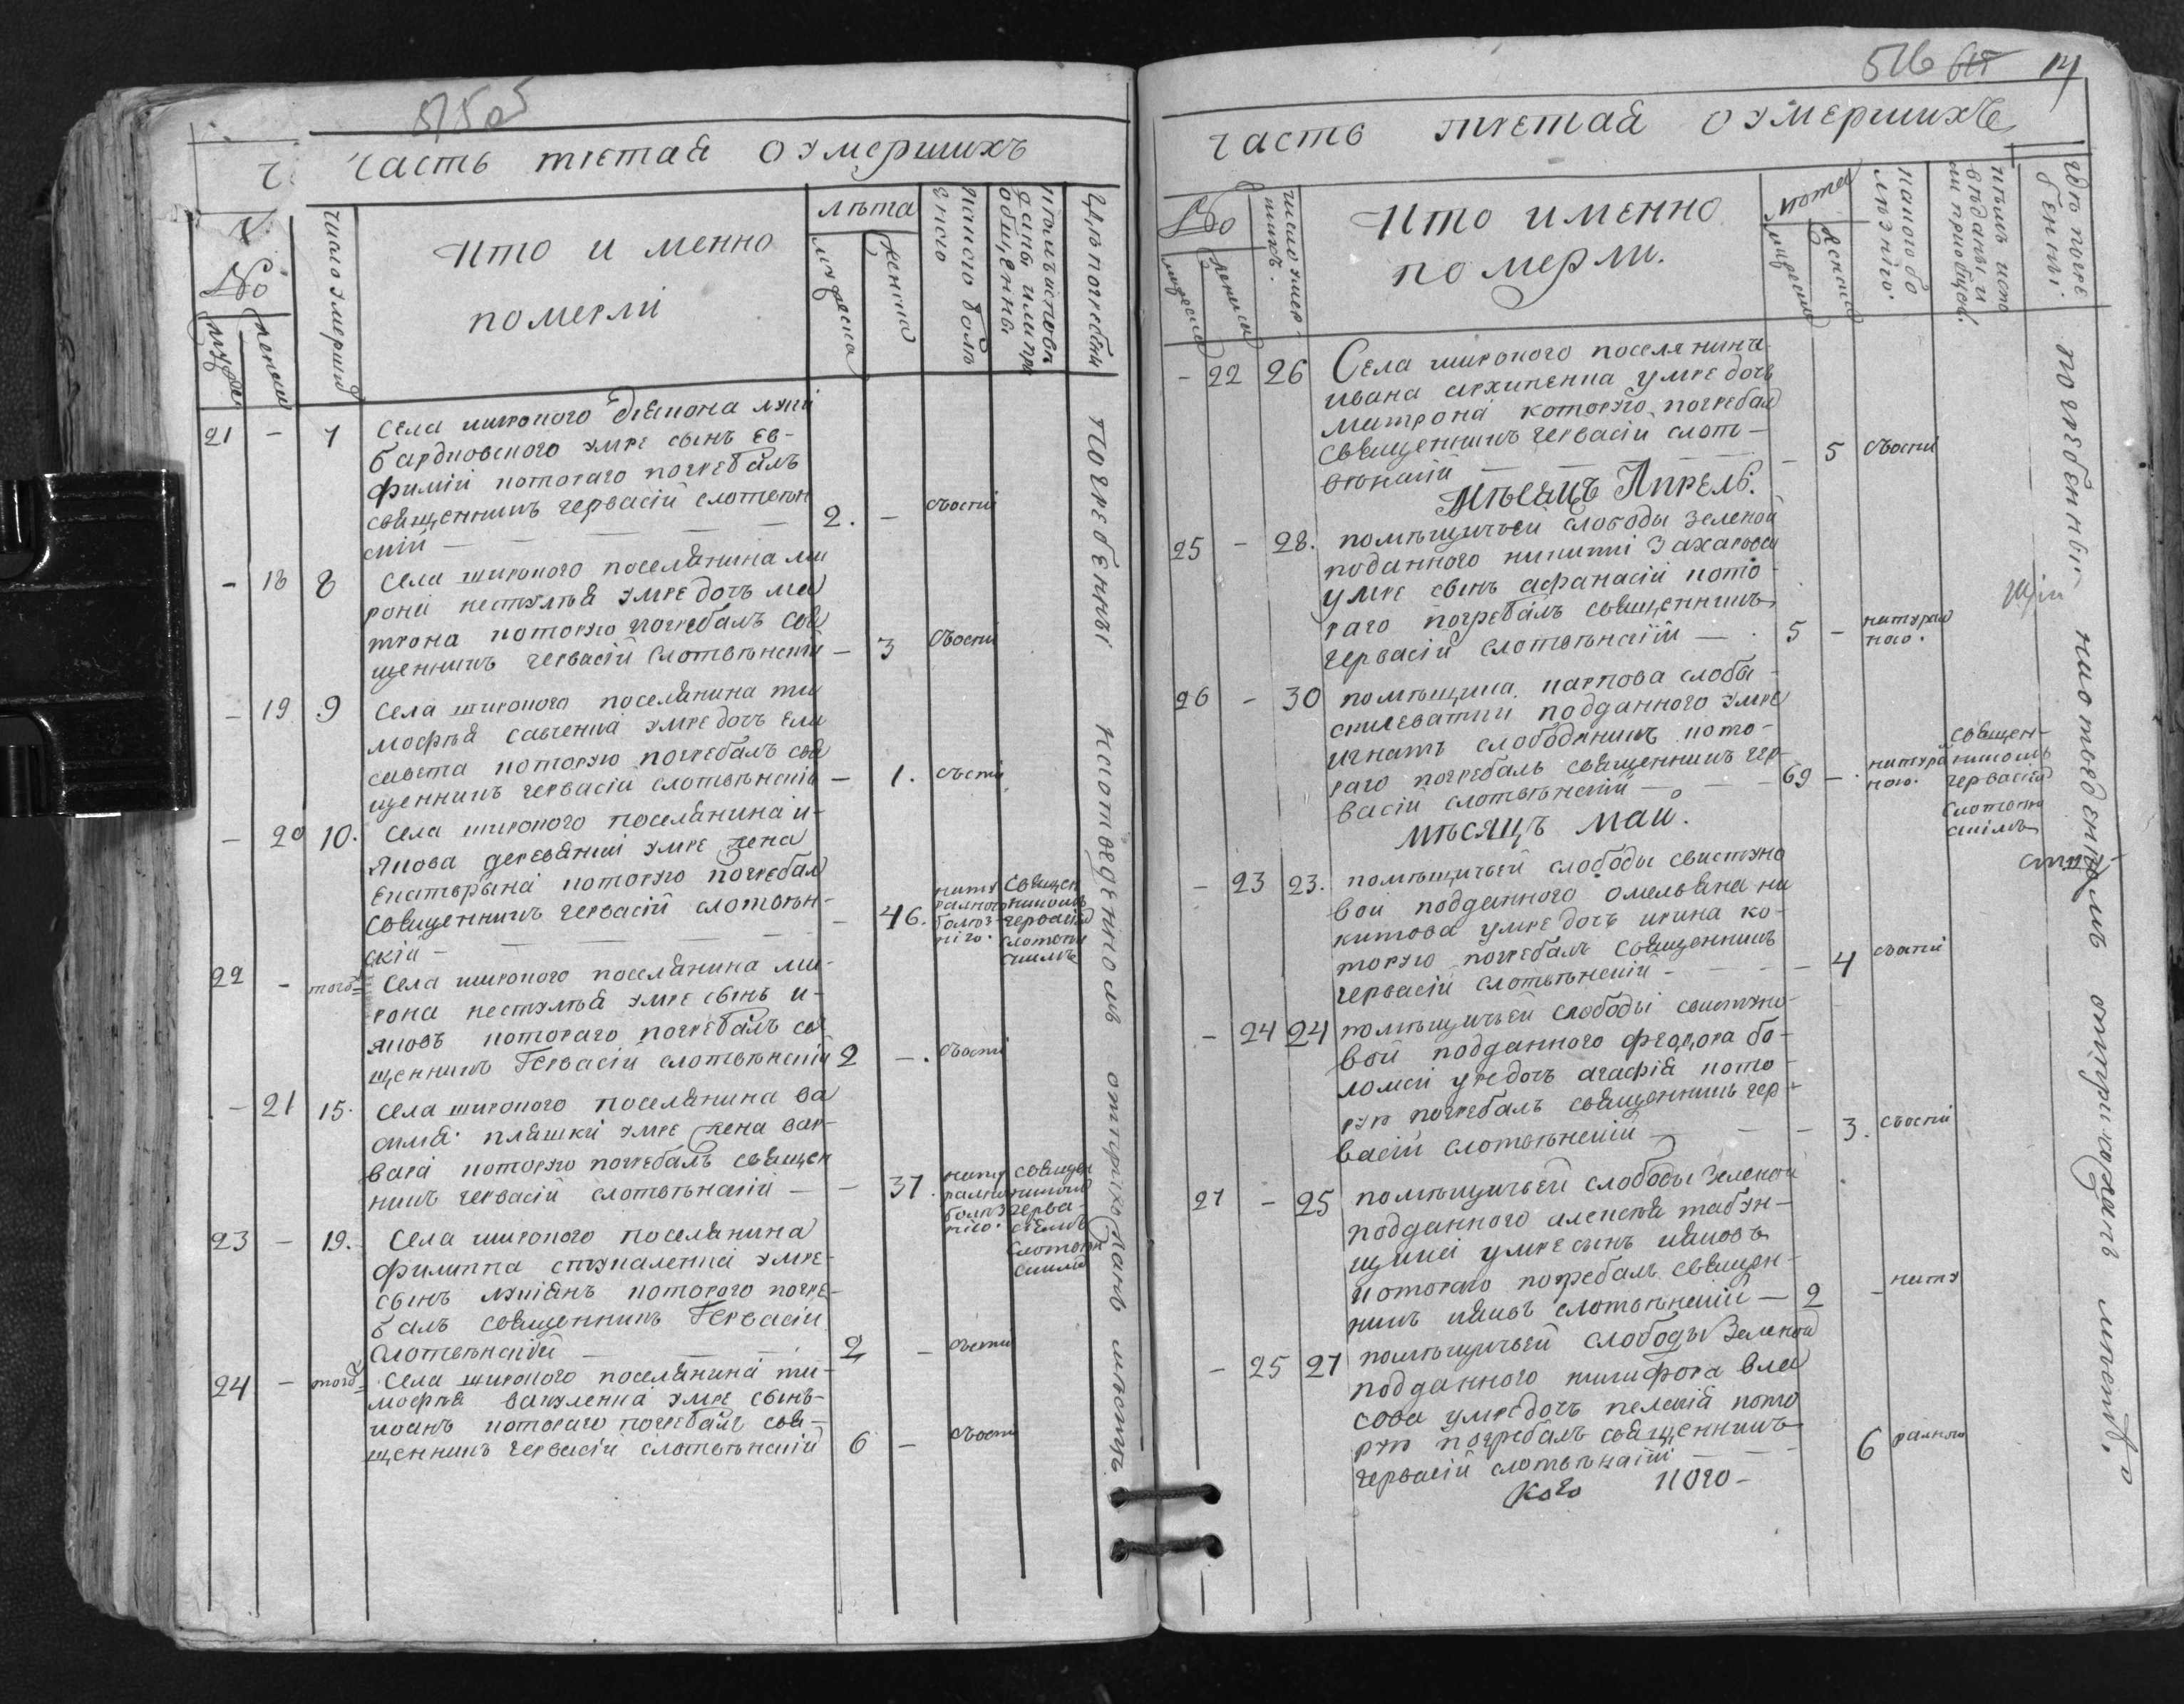 515
часть третая о умершихъ
№
мужеска
женска
число умершихъ
кто и менно
померли
лѣта
мужеска
женска
какою болѣ
зною
кѣмъ исповѣ
даны или прі
общенны
гдѣ погребены
21 - 7
Села широкого діакона луки
бардиовского умре сынъ ев-
фимій которaго погребалъ
священникъ гервасій слотвѣн
скій — 2. - съоспи
- 18 8
Села широкого поселянина ми
рона нестулѣя умре дочъ ма
трона которую погребалъ свя
щенникъ гервасій слотвѣнскій — 3 съоспи
- 19 9
Села широкого поселянина ти
мофѣя савченка умре дочъ ели
савета которую погребалъ свя
щенникъ гервасій слотвѣнскій — 1. съоспи
- 20 10.
Села широкого поселянина и-
якова деревянки умре жена
екатерина которую погребалъ
священникъ гервасій слотвѣн-
скій — - 46.
нату
ралного
болѣз
ніго.
священ
никомъ
гервасіем
слотвѣн
скимъ
22 - того=
Села широкого поселянина ми-
рона нестулѣя умре сынъ и-
яковъ которaго погребалъ свя
щенникъ Гервасій слотвѣнскій 2 -. съоспи
- 21 15.
Села широкого поселянина ва
силя пляшки умре жена вар-
вара которую погребалъ священ
никъ гервасій слотвѣнскій — - 37.
нату
ралною
болѣз
нію.
священ
никомъ
герва-
сіемъ
слотвѣн
скимъ
23 - 19.
Села широкого поселянина
филиппа стукаленка умре
сынъ лукіянъ которого погре-
балъ священникъ Гервасій
слотвѣнскій — 2 - съоспи
24 - того=
Села широкого поселянина ти-
мофѣя вакуленка умре сынъ
иоанъ которaго погребалъ свя-
щенникъ гервасій слотвѣнскій 6 - съоспи
погребенны на отведенномъ отприхожанъ мѣстѣ
516 14
часть третая о умершихъ
№
мужеска
женска
число умер-
шихъ.
кто именно
померли.
лѣта
мужеска
женска
какою бо
лѣзніго.
кѣмъ испо
вѣданы и
ли приобщен.
гдѣ погре
бенны.
- 22 26
Села широкого поселянина
ивана архипенка умре дочъ
матрона которую погребалъ
священникъ гервасій слот-
вѣнскій — - 5 съоспи
Мѣсяцъ Апрель.
25 - 28.
помѣщичьей слободы Зеленой
поданного никитки Захарова
умре сынъ афанасій кото-
раго погребалъ священникъ
гервасій слотвѣнскій — 5 - натурал
ною.
26 - 30
помѣщика карпова слобы
скилеватки подданного умре
игнатъ слободяникъ кото-
раго погребалъ священникъ гер-
васій слотвѣнскій — - 69 -
натурал
ною.
священ-
никомъ
гервасіем
слотвѣн
скімъ
мѣсяцъ маи.
- 23 23.
помѣщичьей слободы свистуно
вой подданного омельяна ни
китова умре дочъ ирина ко-
торую погребалъ священникъ
гервасій слотвѣнскій - - 4 съоспи
- 24 24
помѣщичьей слободы свистуно-
вой подданного феодора бо-
ломки уредочъ агафія кото
рую погребалъ священникъ гер-
васій слотвѣнскій — - 3. съоспи
27 - 25
помѣщичьей слободы Зеленой
подданного алексѣя табун-
щика умре сынъ иаковъ
которaго погребалъ священ-
никъ иаковъ слотвѣнскій — 2 - нату
- 25 27
помѣщичьей слободы Зеленой
подданного никифора вла
сова умре дочъ пелагія кото
рую погребалъ священникъ
гервасій слотвѣнскій — 6 ралною
погребенны на отведенномъ отприхожанъ мѣстѣ.